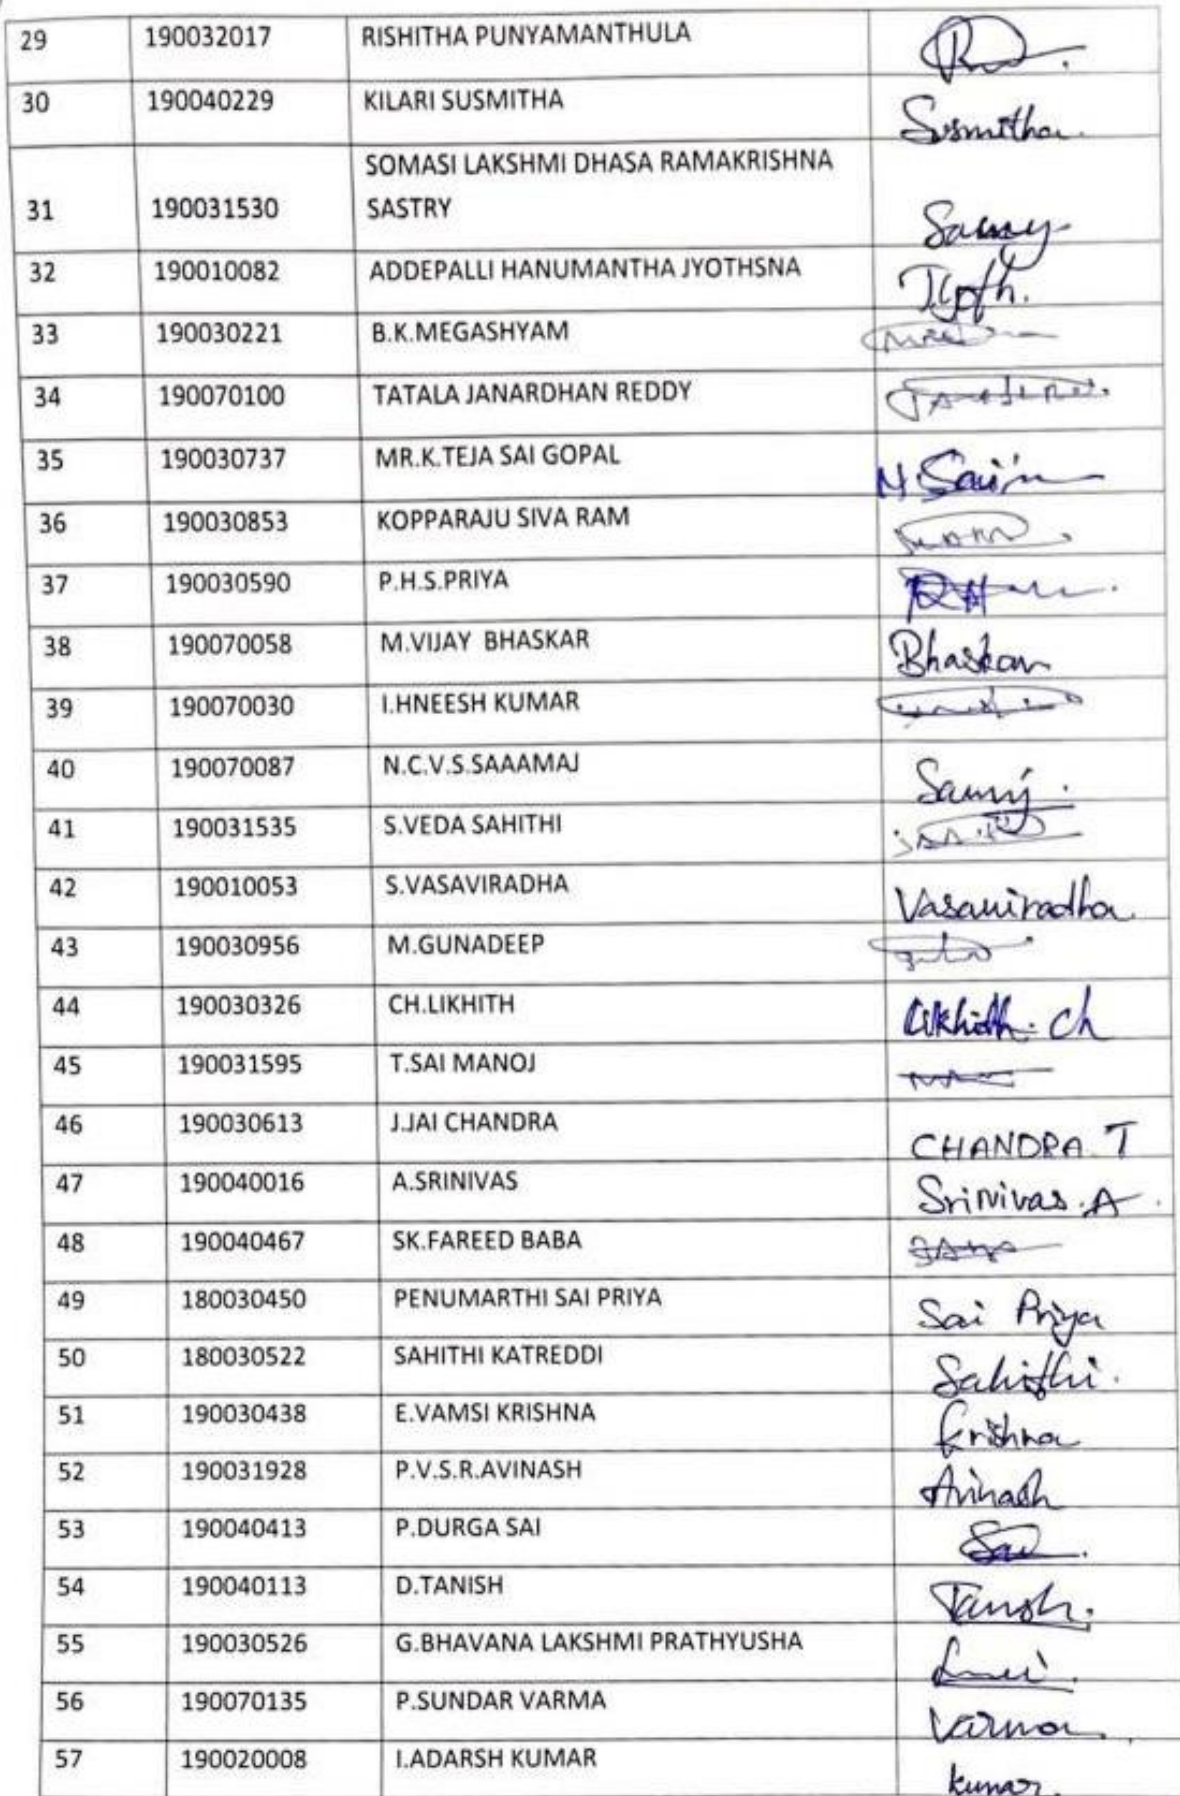 29 190032017 RISHITHA PUNYAMANTHULA
30 190040229 KILARI SUSMITHA Susmitha.
SOMASI LAKSHMI DHASA RAMAKRISHNA
31 190031530 SASTRY
32 190010082 ADDEPALLI HANUMANTHA JYOTHSNA
33 190030221 B.K.MEGASHYAM
34 190070100 TATALA JANARDHAN REDDY
35 190030737 MR.K.TEJA SAI GOPAL
36 190030853 KOPPARAJU SIVA RAM
37 190030590 P.H.S.PRIYA
38 190070058 M.VIJAY BHASKAR Bhaskar
39 190070030 I.HNEESH KUMAR
40 190070087 N.C.V.S.SAAAMAJ
41 190031535 S.VEDA SAHITHI
42 190010053 S.VASAVIRADHA Vasaviradha.
43 190030956 M.GUNADEEP
44 190030326 CH.LIKHITH Likhith. Ch
45 190031595 T.SAI MANOJ
46 190030613 J.JAI CHANDRA CHANDRA T
47 190040016 A.SRINIVAS Srinivas.A.
48 190040467 SK.FAREED BABA
49 180030450 PENUMARTHI SAI PRIYA Sai Priya
50 180030522 SAHITHI KATREDDI Sahithi.
51 190030438 E.VAMSI KRISHNA Krishna
52 190031928 P.V.S.R.AVINASH Avinash
53 190040413 P.DURGA SAI Sai.
54 190040113 D.TANISH Tanish.
55 190030526 G.BHAVANA LAKSHMI PRATHYUSHA
56 190070135 P.SUNDAR VARMA Varma.
57 190020008 I.ADARSH KUMAR kumar.